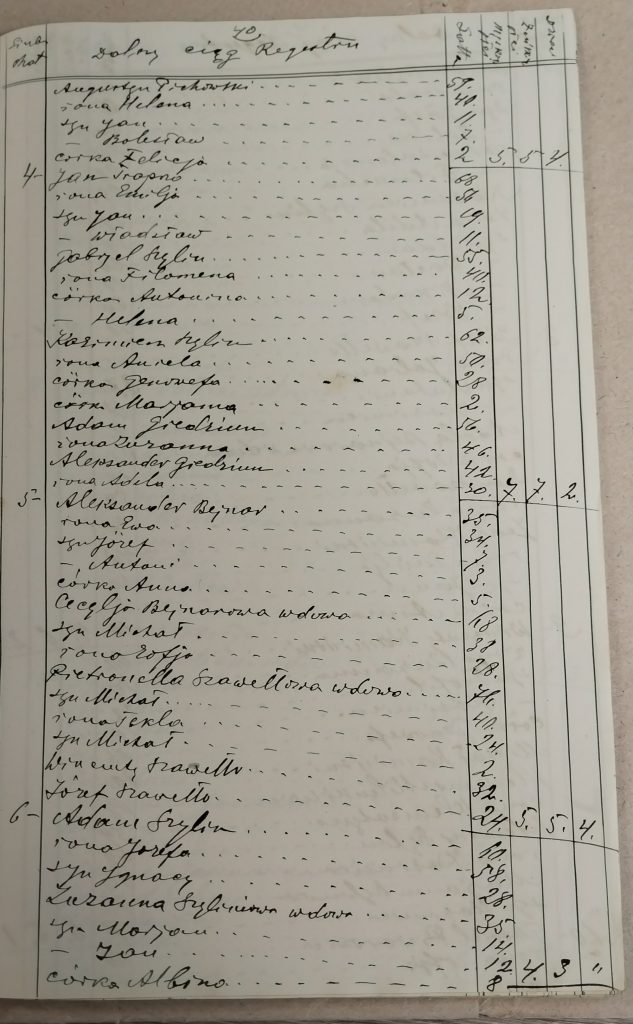 40
Dalszy ciąg Regestru
Lata
Augustyn Pichowski 59.
żona Helena 40.
syn Jan 11.
— Bolesław 7.
córka Felicja 2 5. 5 4.
4- Jan Trapko 68
żona Emilja 56
syn Jan 19.
— Władysław 11.
Gabryel Szylin 55.
żona Filomena 40.
córka Antonina 12
— Helena 5.
Kazimierz Szylin 62.
żona Aniela 50.
córka Genowefa 28
córka Marjanna 2.
Adam Giedziun 56.
żona Zuzanna 46.
Aleksander Giedziun 42.
żona Adela 30. 7. 7. 2.
5- Aleksander Bejnar 35.
żona Ewa 34.
syn Józef 7.
— Antoni 3.
córka Anna 5.
Cecylja Bejnarowa wdowa 68
syn Michał 38
żona Zofja 28.
Pietronella Szawełłowa wdowa
syn Michał 40.
żona Tekla 24.
syn Michał 2.
Wincenty Szawełło 32.
Józef Szawełło 24. 5. 5. 4.
6- Adam Szylin 60.
żona Józefa 58.
syn Ignacy 28.
Zuzanna Szyliniowa wdowa 35.
syn Marjan 14.
— Jan 12 4. 3 "
córka Albina 8